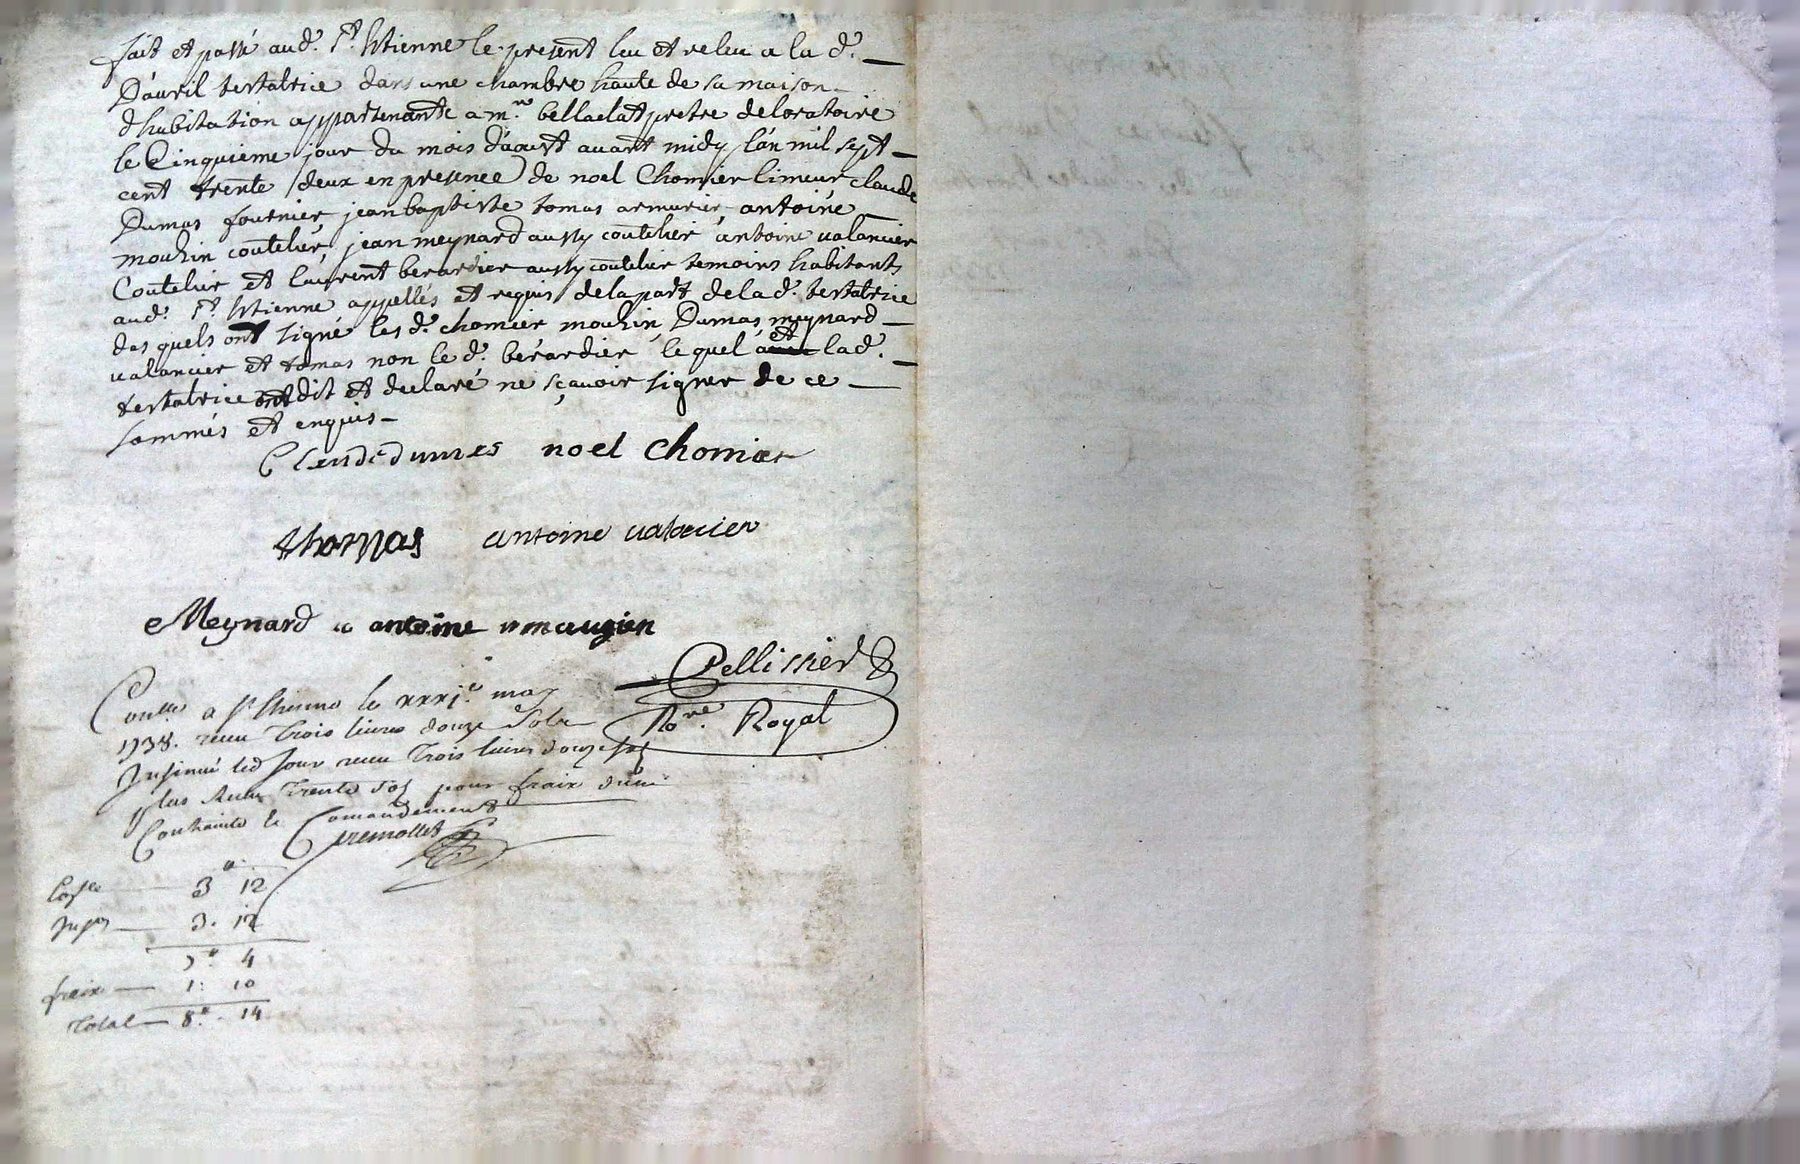 fait et passé aud.t St. Estienne le present leu et releu a la d.e
Dauril testatrice dans une chambre haute de sa maison
d habitation appartenante a m.re bellaclat pretre deloratoire
le Cinquieme jour du mois d'aoust auant midy l'án mil sept
cent trente deux en presence de noel Chomier limeur claude
Dumas fournier jean baptiste tomas armurier antoine
moulin coutelier, jean meynard aussy coutelier antoine ualancier
Coutelier et laurent berardier aussy coutelier temoins habitants
aud.t St. Estienne appellés et requis delapart delad.e testatrice
des quels ont signé lesd.s chomier moulin Dumas meynard
ualancier et tomas non led.t bérardier lequel et lad.e
testatrice ont dit et declaré ne sçauoir signer de ce
sommés et enquis
noel chomier
thomas antoine ualancier
Meynard antoine
Pellissier
No.re Royal
Con.lle a St Etienne le xxxj.e may
1738. receu Trois liures douze Sols
Insinué led Jour receu Trois liures douze sols
plus Receu Trente sols pour fraix d'une
Contrainte & Comandement
3 12
3. 12
7.# 4
fraix 1: 10
Total 8.# 14